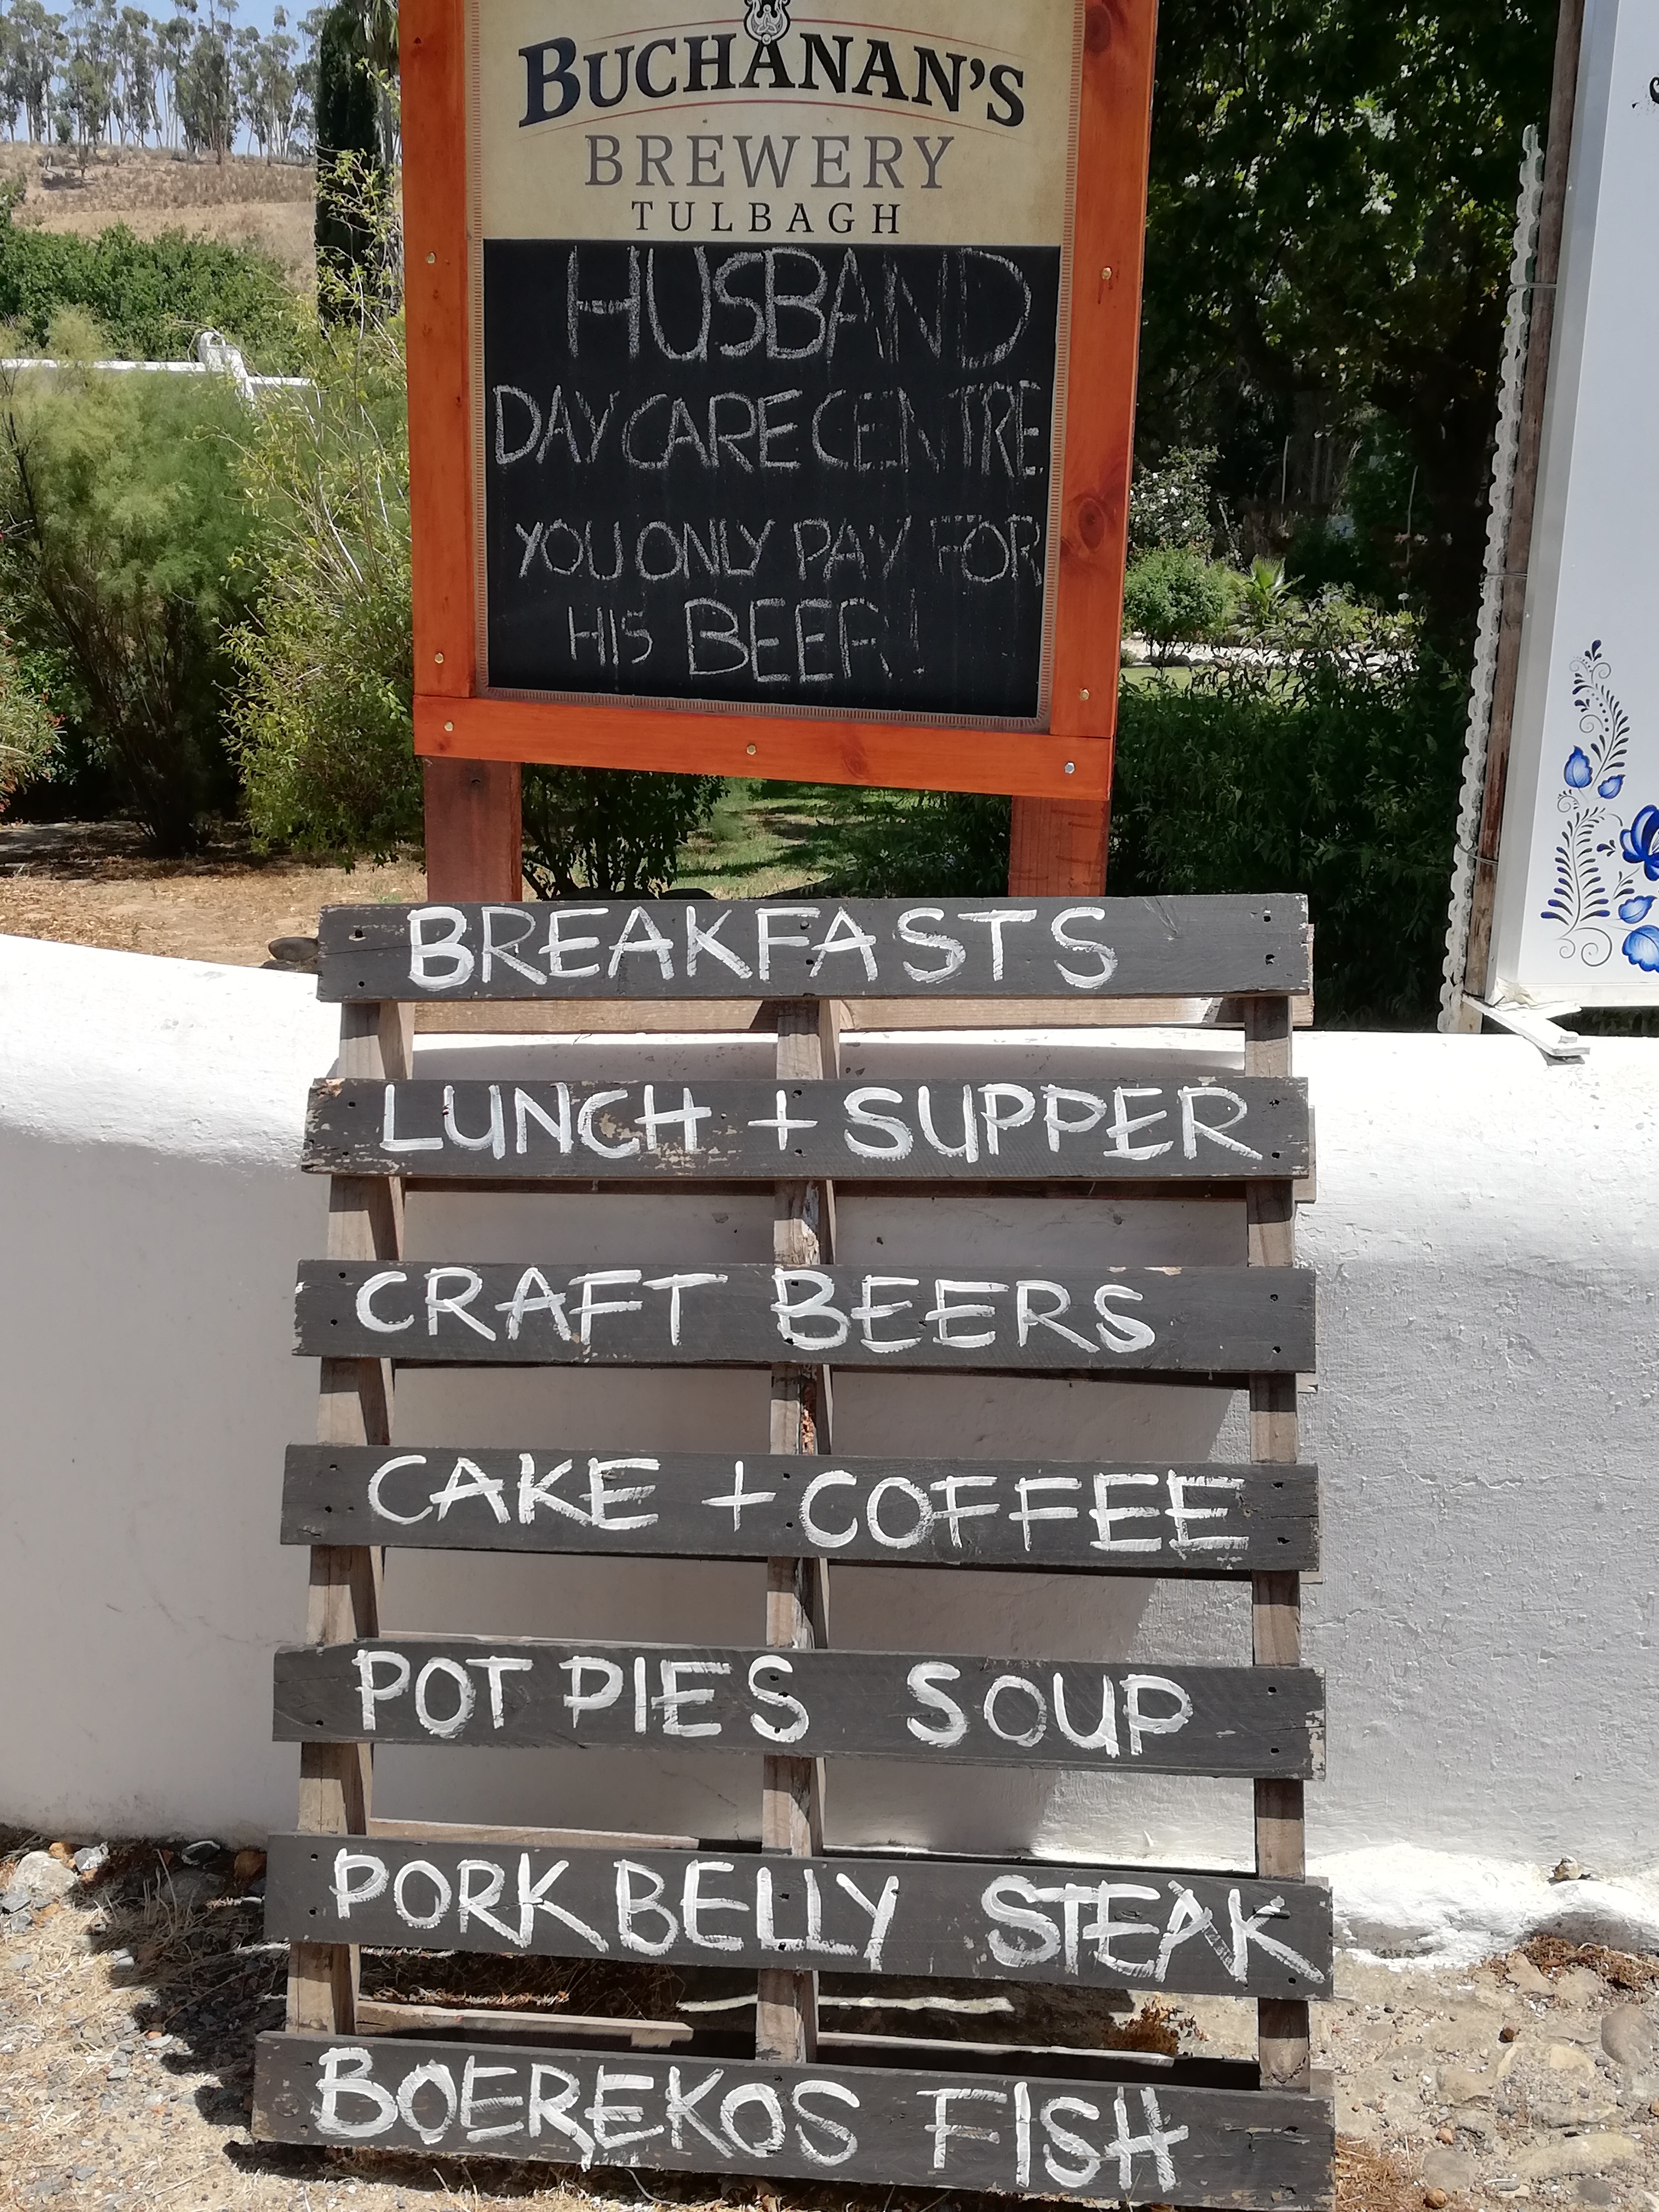 BUCHANAN'S
BREWERY
TULBAGH
HUSBAND
DAY CARE CENTRE
YOU ONLY PAY FOR
HIS BEER!
BREAKFASTS
LUNCH + SUPPER
CRAFT BEERS
CAKE + COFFEE
POT PIES SOUP
PORK BELLY STEAK
BOEREKOS FISH